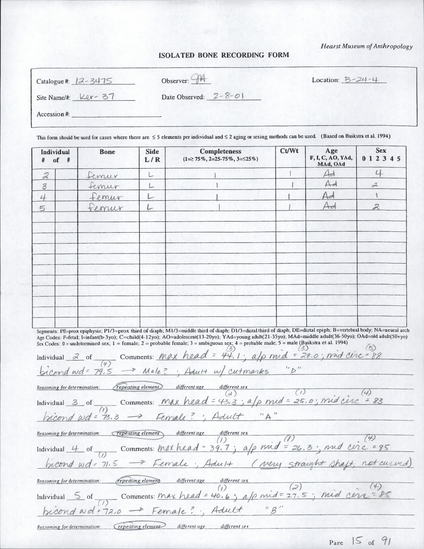 Hearst Museum of Anthropology
ISOLATED BONE RECORDING FORM
Catalogue #: 12-3475 Observer: Location: B-24-4
Site Name/#: Ker-37 Date Observed: 2-8-01
Accession #:
This form should be used for cases where there are ≤ 5 elements per individual and ≤ 2 aging or sexing methods can be used. (Based on Buikstra et al. 1994)
Individual Bone Side Completeness Ct/Wt Age Sex
# of # L / R (1=≥ 75%, 2=25-75%, 3=≤25%) F, I, C, AO, YAd, MAd, OAd 0 1 2 3 4 5
2 femur L 1 1 Ad 4
3 femur L 1 1 Ad 2
4 femur L 1 1 Ad 1
5 femur L 1 1 Ad 2
Segments: PE=prox epiphysis; P1/3=prox third of diaph; M1/3=middle third of diaph; D1/3=distal third of diaph; DE=distal epiph; B=vertebral body; NA=neural arch
Age Codes: F=fetal; I=infant(b-3yo); C=child(4-12yo); AO=adolescent(13-20yo); YAd=young adult(21-35yo); MAd=middle adult(36-50yo); OAd=old adult(50+yo)
Sex Codes: 0 = undetermined sex; 1 = female; 2 = probable female; 3 = ambiguous sex; 4 = probable male; 5 = male (Buikstra et al. 1994)
Individual 2 of Comments: max head = 44.1; a/p mid = 28.0; mid circ = 88
bicond wd = 79.5 → Male?; Adult w/ cutmarks "D"
Reasoning for determination: repeating element different age different sex
Individual 3 of Comments: max head = 43.3; a/p mid = 25.0; mid circ = 83
bicond wd = 73.3 → Female?; Adult "A"
Reasoning for determination: repeating element different age different sex
Individual 4 of Comments: max head = 39.7; a/p mid = 26.3; mid circ = 85
bicond wd = 71.5 → Female; Adult (very straight shaft, not curved)
Reasoning for determination: repeating element different age different sex
Individual 5 of Comments: max head = 40.6; a/p mid = 27.5; mid circ = 85
bicond wd = 72.0 → Female?; Adult "B"
Reasoning for determination: repeating element different age different sex
Page 15 of 91